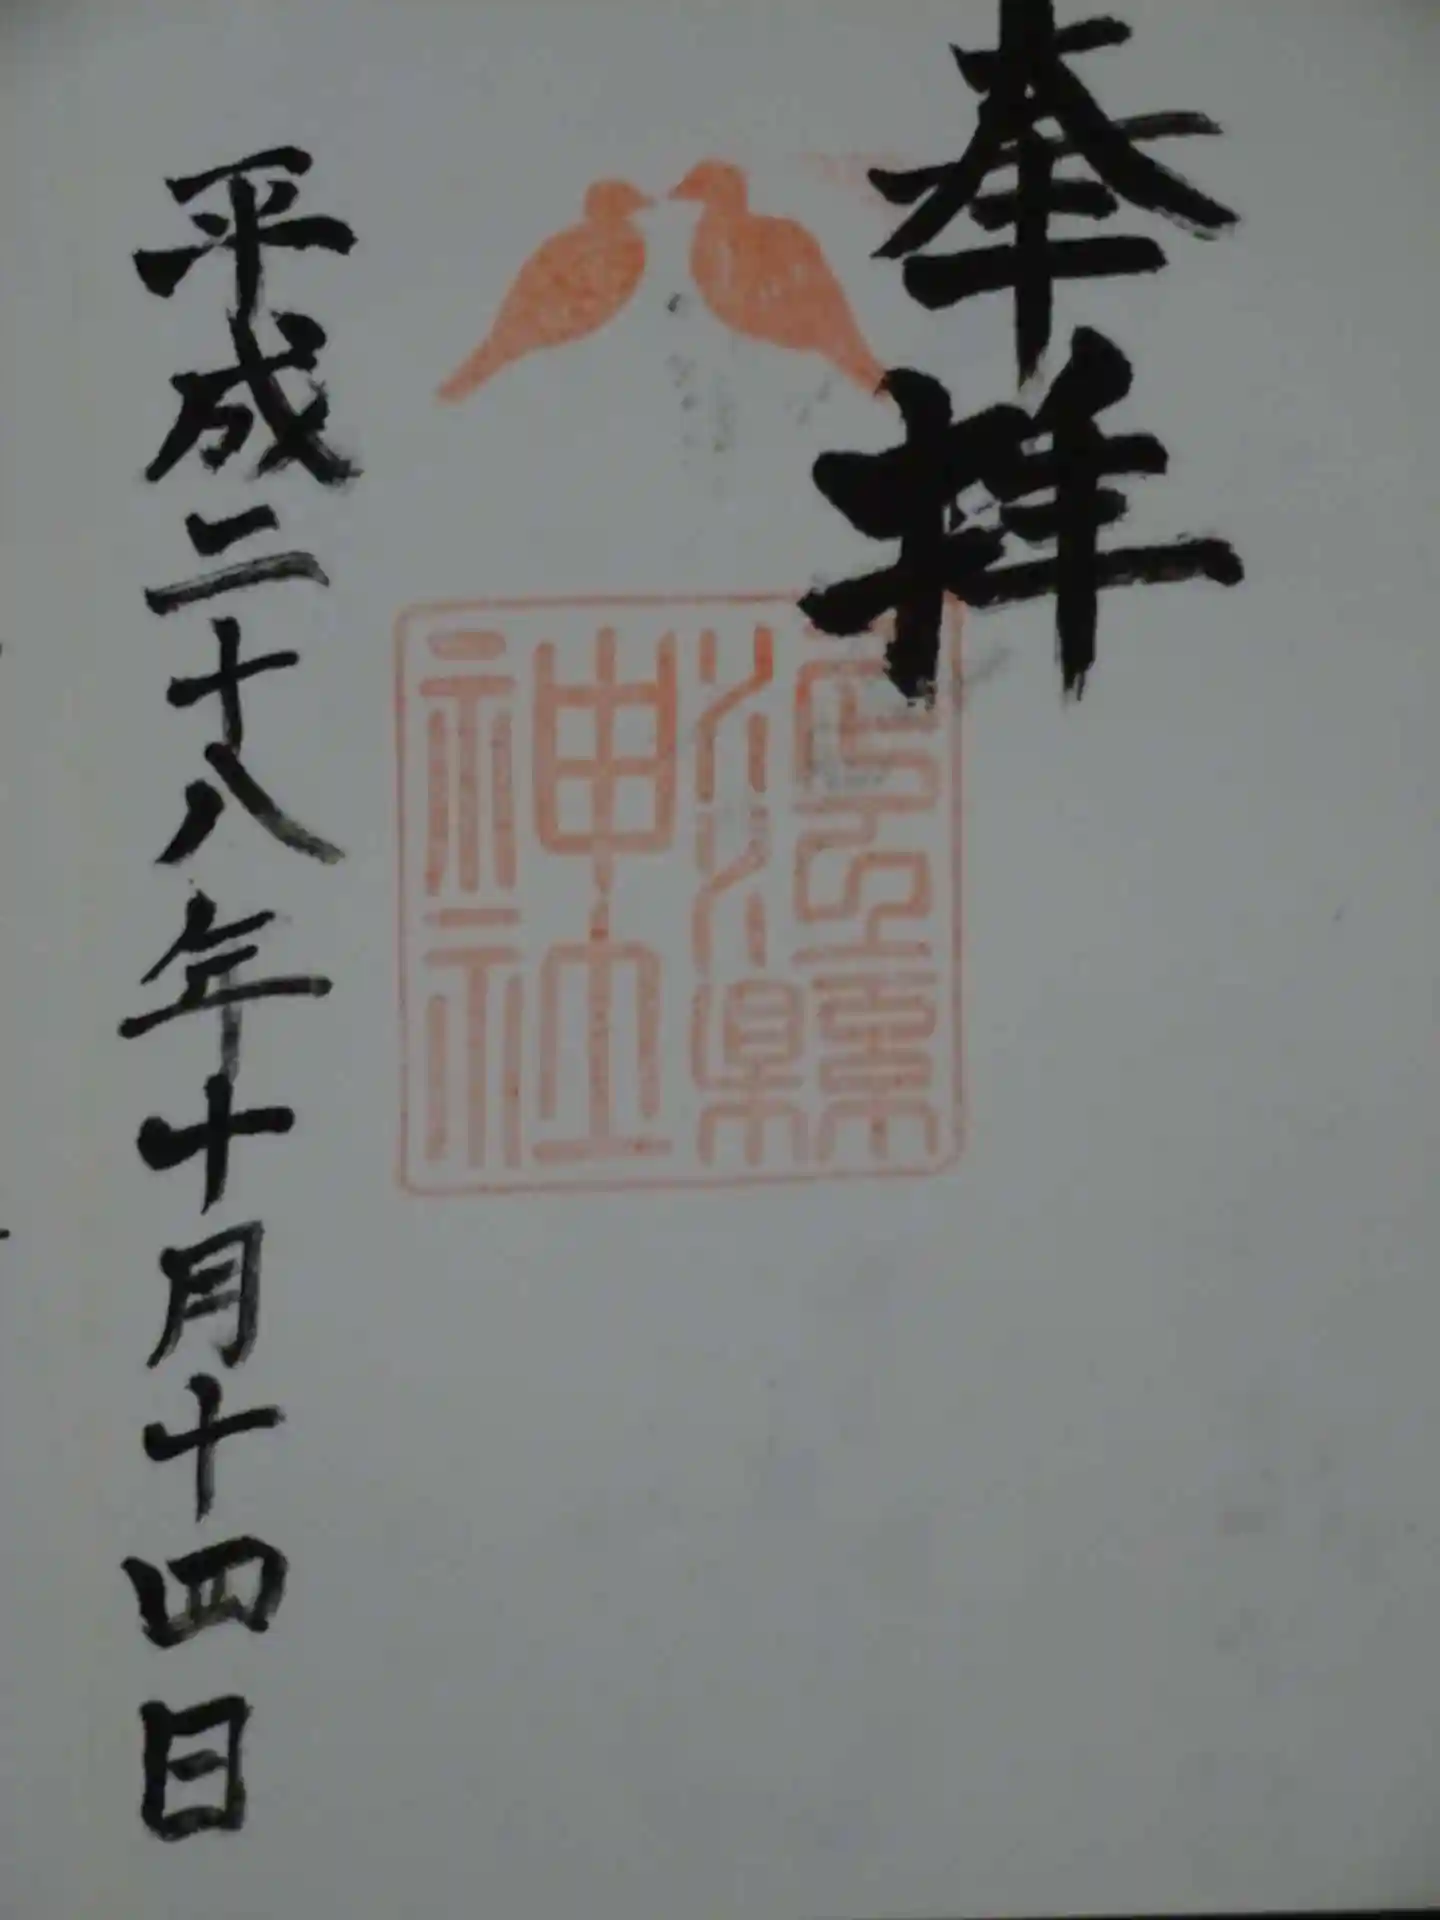 奉拝
泥江縣神社
平成二十八年十月十四日